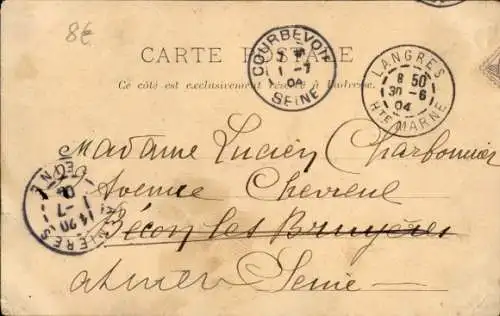 8€
CARTE POSTALE
Ce côté est exclusivement réservé à l'adresse.
COURBEVOIE
1 -7
04
SEINE
LANGRES
8 50
30 -6
04
HTE MARNE
Madame Lucien Charbonnier
Avenue Chevreul
Bécon les Bruyères
Seine
14 20
1 -7
04
SEINE